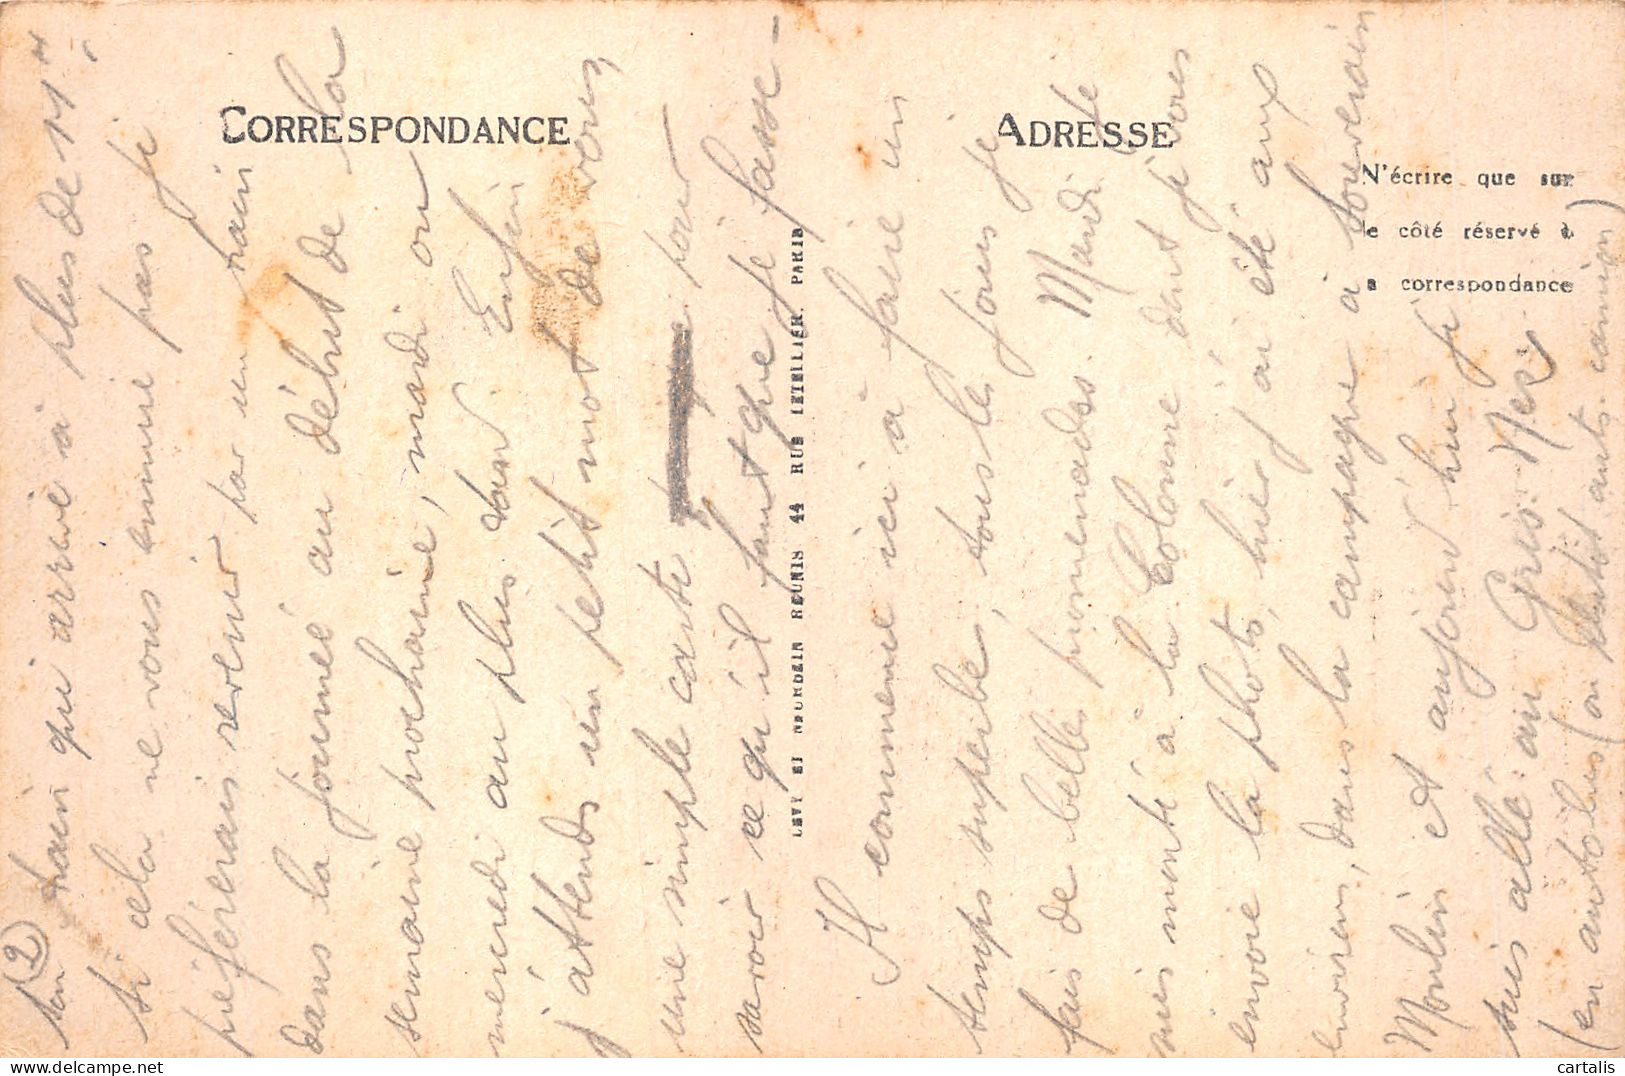 CORRESPONDANCE
ADRESSE
N'écrire que sur
le côté réservé à
la correspondance
LEVY ET NEURDEIN REUNIS 44 RUE LETELLIER. PARIS
2
train qui arrive à plus de 11 H.
Si cela ne vous ennuie pas je
préférerais revenir par un train
dans la journée au début de la
semaine prochaine, mardi ou
mercredi au plus tard. Enfin
j'attends un petit mot de vous,
une simple carte pour
savoir ce qu'il faut que je fasse -
Il commence ici à faire un
temps superbe, tous les jours je
fais de belles promenades. Mardi
suis monté à la Colonne dont je vous
envoie la photo, hier j'ai été aux
environs, dans la campagne à Souverain
Moulin et aujourd'hui je
suis allé au Gris Nez
(en autobus (ou plutôt auto-camion)
cartalis.com